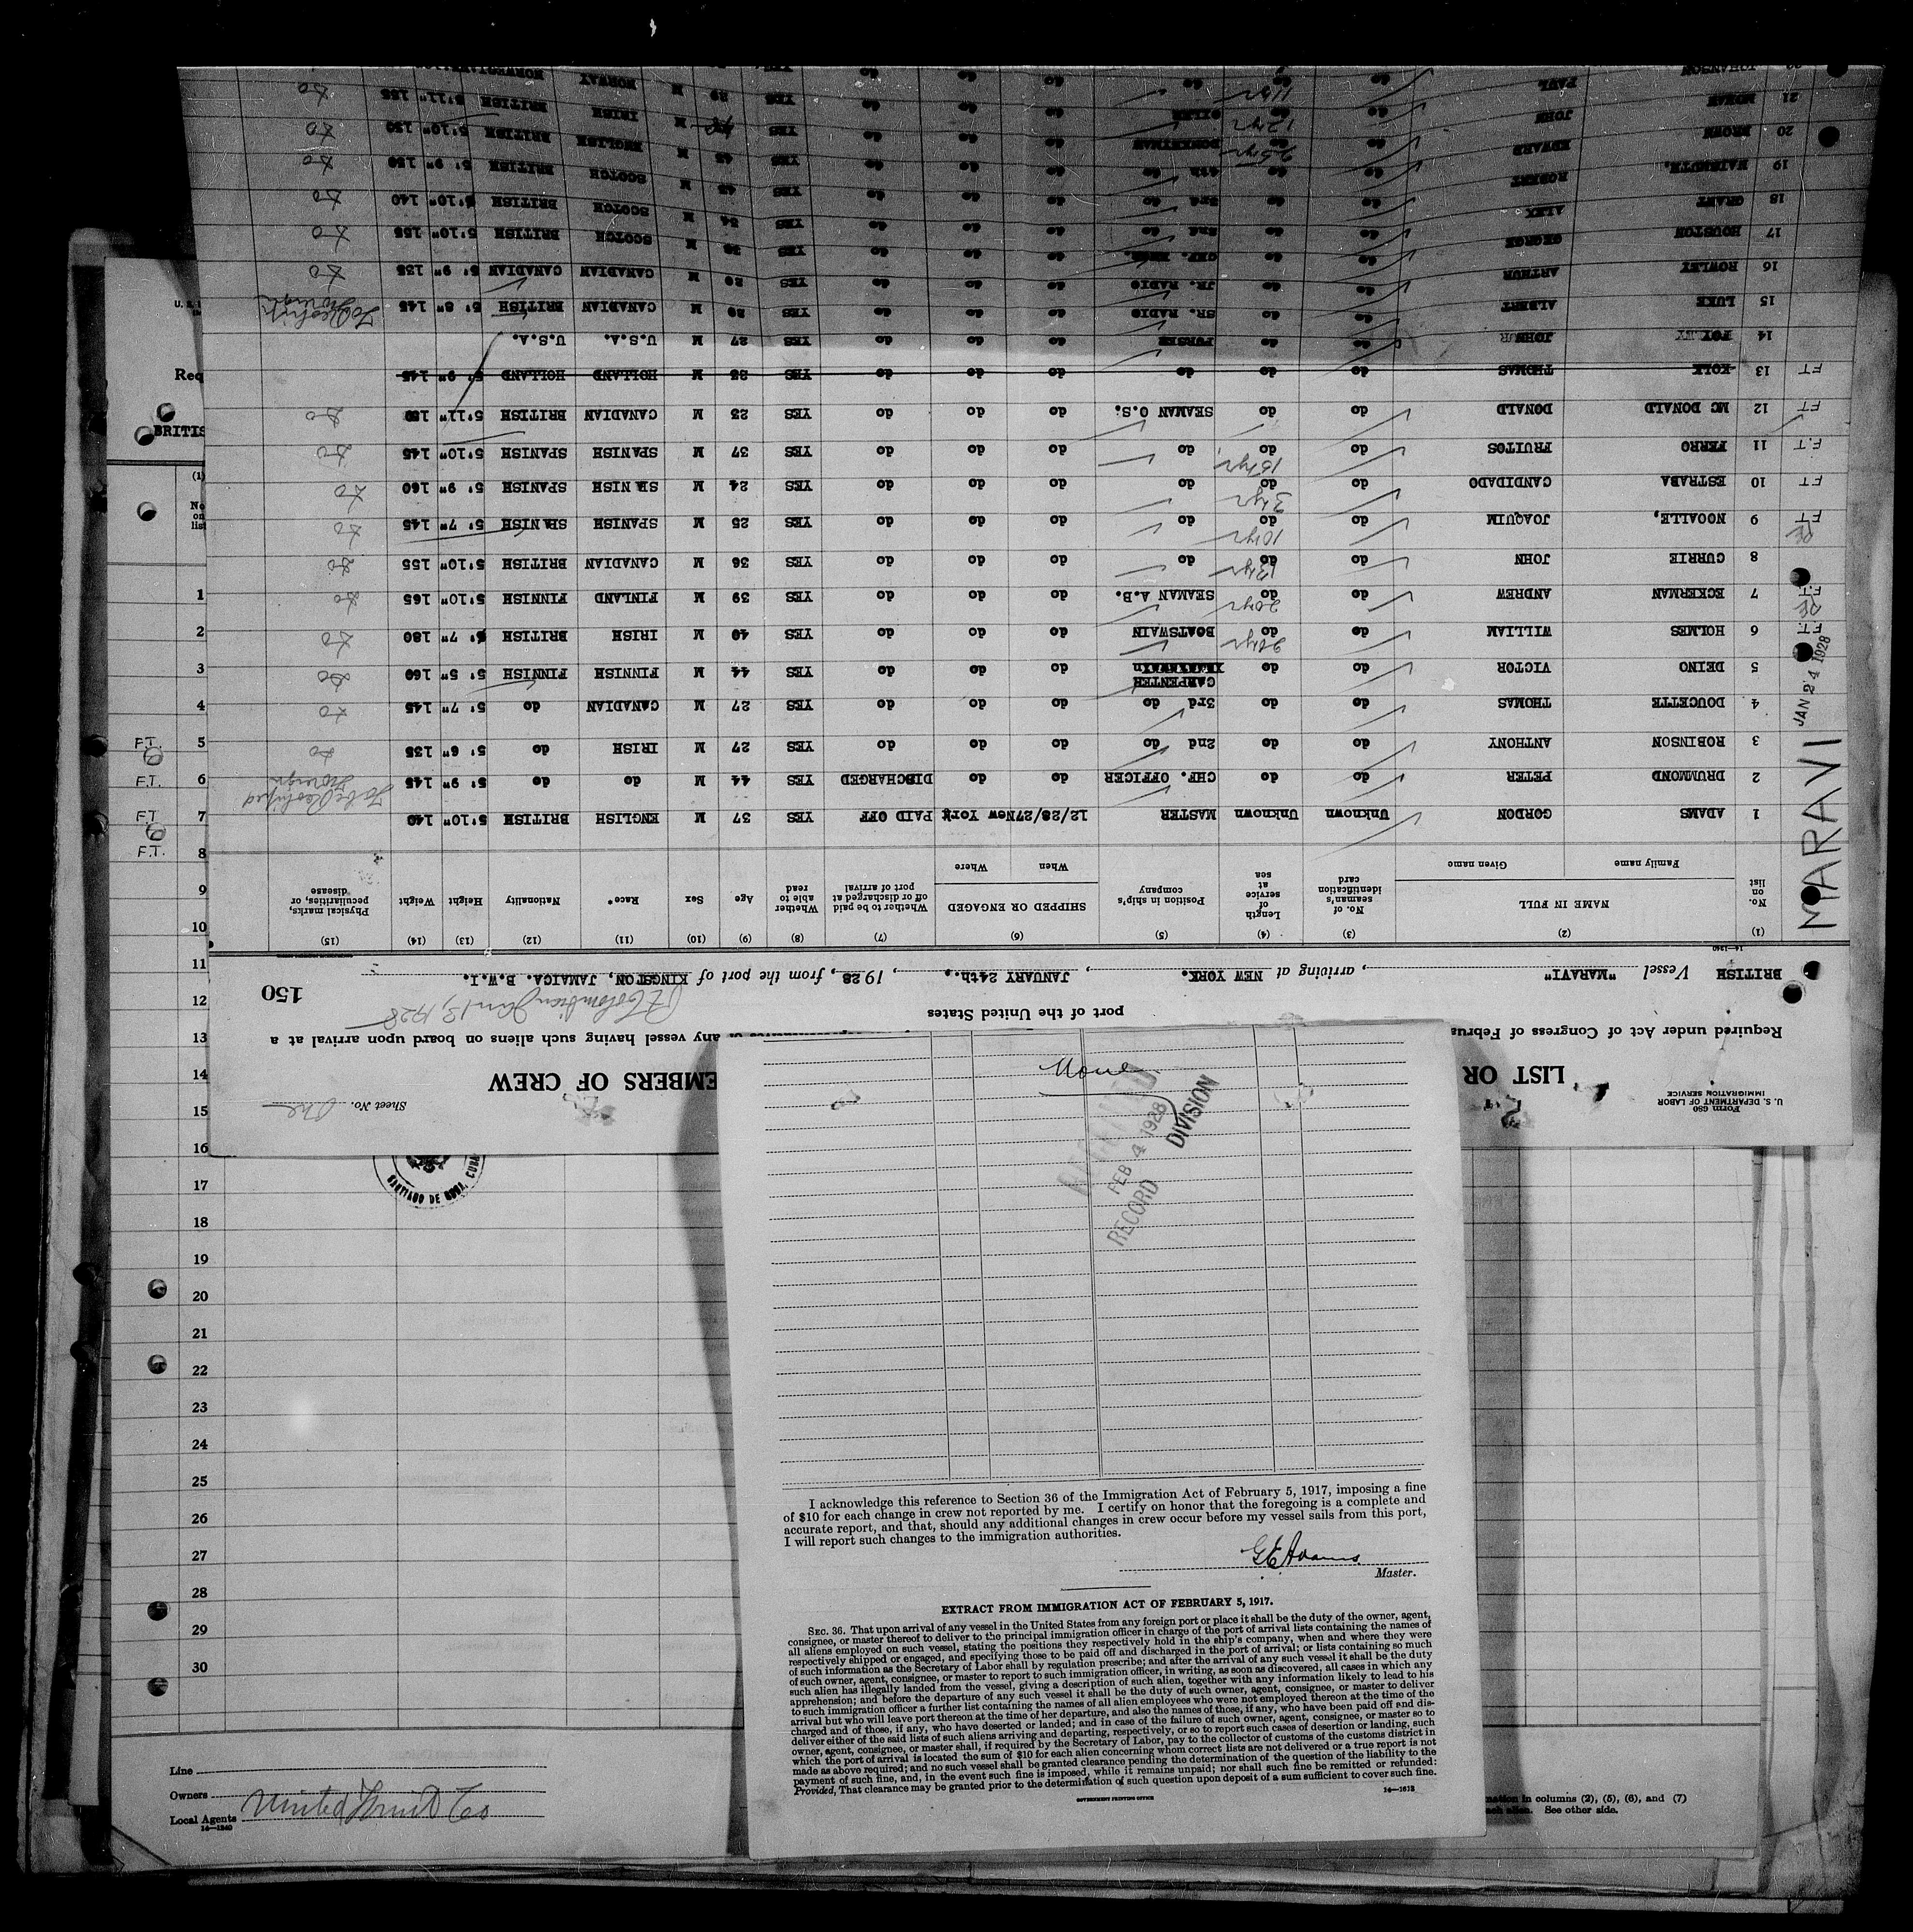 Form 680
U. S. DEPARTMENT OF LABOR
IMMIGRATION SERVICE
Sheet No. One
LIST OR
EMBERS OF CREW
Required under Act of Congress of Februa
any vessel having such aliens on board upon arrival at a
port of the United States
150
BRITISH Vessel "MARAVI", arriving at NEW YORK., JANUARY 24th., 1928, from the port of KINGSTON, JAMAICA. B.W.I.
14—1240
(1) (2) (3) (4) (5) (6) (7) (8) (9) (10) (11) (12) (13) (14) (15)
No. on list NAME IN FULL No. of seaman's identification card Length of service at sea Position in ship's company SHIPPED OR ENGAGED Whether to be paid off or discharged at port of arrival Whether able to read Age Sex Race* Nationality Height Weight Physical marks, peculiarities, or disease
Family name Given name When Where
1 ADAMS GORDON Unknown Unknown MASTER 12/28/27 New York PAID OFF YES 37 M ENGLISH BRITISH 5'10" 140
2 DRUMMOND PETER do do CHF. OFFICER do do DISCHARGED YES 44 M do do 5' 9" 145
3 ROBINSON ANTHONY do do 2nd do do do do YES 27 M IRISH do 5' 6" 135 do
4 DOUCETTE THOMAS do do 3rd do do do do YES 27 M CANADIAN do 5' 7" 145 do
5 DEINO VICTOR do do CARPENTER do do do YES 44 M FINNISH FINNISH 5' 5" 160 do
FT 6 HOLMES WILLIAM do do 26yr BOATSWAIN do do do YES 40 M IRISH BRITISH 5' 7" 180 do
FT 7 ECKERMAN ANDREW do do 20yr SEAMAN A.B. do do do YES 39 M FINLAND FINNISH 5'10" 165 do
8 CURRIE JOHN do do 13yr do do do do YES 36 M CANADIAN BRITISH 5'10" 155 do
FT 9 NOOALLE, JOAQUIM do do 10yr do do do do YES 25 M SPANISH SPANISH 5' 7" 145 do
FT 10 ESTRABA CANDIDADO do do 3yr do do do do YES 24 M SPANISH SPANISH 5' 9" 160 do
F.T 11 FERRO FRUITOS do do 15yr do do do do YES 37 M SPANISH SPANISH 5'10" 145 do
FT 12 MC DONALD DONALD do do SEAMAN O.S. do do do YES 23 M CANADIAN BRITISH 5'11" 150 do
FT 13 KOLK THOMAS do do do do do do YES 25 M HOLLAND HOLLAND 5' 9" 145
14 FOYLEY JOHN do do PURSER do do do YES 27 M U.S.A. U.S.A.
15 LUKE ALBERT do do SR. RADIO do do do YES 20 M CANADIAN BRITISH 5' 8" 145
16 ROWLEY ARTHUR do do JR. RADIO do do do YES 20 M CANADIAN CANADIAN 5' 9" 135 do
17 HOUSTON GEORGE do do CHF. ENGR. do do do YES M SCOTCH BRITISH 5'10" 155 do
18 GRANT ALEX do do 2nd do do do YES 34 M SCOTCH BRITISH 5'10" 140 do
19 NAISMYTH, ROBERT do do 3rd do do do YES M SCOTCH BRITISH 5' 9" 150 do
20 BROWN EDWARD do do 4th do do do YES 45 M ENGLISH BRITISH 5'10" 150 do
21 MORAN JOHN do do 12yr DONKEYMAN do do do YES M IRISH BRITISH 5'11" 155 do
JOHANSON PAUL do do 11yr OILER do do do YES 29 M NORWAY NORWEGIAN
MARAVI
JAN 24 1928
U. S.
Req
BRITIS
(1)
No. on list
1
2
3
4
F.T. 5
F.T. 6
F.T. 7
F.T. 8
9
10
11
12
13
14
15
16
17
18
19
20
21
22
23
24
25
26
27
28
29
30
SANTIAGO DE CUBA, CUBA
Line
Owners
Local Agents United Fruit Co
14—1240
mation in columns (2), (5), (6), and (7)
ach alien. See other side.
None
FEB 4 1928
RECORD DIVISION
I acknowledge this reference to Section 36 of the Immigration Act of February 5, 1917, imposing a fine
of $10 for each change in crew not reported by me. I certify on honor that the foregoing is a complete and
accurate report, and that, should any additional changes in crew occur before my vessel sails from this port,
I will report such changes to the immigration authorities.
G E Adams
Master.
EXTRACT FROM IMMIGRATION ACT OF FEBRUARY 5, 1917.
SEC. 36. That upon arrival of any vessel in the United States from any foreign port or place it shall be the duty of the owner, agent,
consignee, or master thereof to deliver to the principal immigration officer in charge of the port of arrival lists containing the names of
all aliens employed on such vessel, stating the positions they respectively hold in the ship's company, when and where they were
respectively shipped or engaged, and specifying those to be paid off and discharged in the port of arrival; or lists containing so much
of such information as the Secretary of Labor shall by regulation prescribe; and after the arrival of any such vessel it shall be the duty
of such owner, agent, consignee, or master to report to such immigration officer, in writing, as soon as discovered, all cases in which any
such alien has illegally landed from the vessel, giving a description of such alien, together with any information likely to lead to his
apprehension; and before the departure of any such vessel it shall be the duty of such owner, agent, consignee, or master to deliver
to such immigration officer a further list containing the names of all alien employees who were not employed thereon at the time of the
arrival but who will leave port thereon at the time of her departure, and also the names of those, if any, who have been paid off and dis-
charged and of those, if any, who have deserted or landed; and in case of the failure of such owner, agent, consignee, or master so to
deliver either of the said lists of such aliens arriving and departing, respectively, or so to report such cases of desertion or landing, such
owner, agent, consignee, or master shall, if required by the Secretary of Labor, pay to the collector of customs of the customs district in
which the port of arrival is located the sum of $10 for each alien concerning whom correct lists are not delivered or a true report is not
made as above required; and no such vessel shall be granted clearance pending the determination of the question of the liability to the
payment of such fine, and, in the event such fine is imposed, while it remains unpaid; nor shall such fine be remitted or refunded:
Provided, That clearance may be granted prior to the determination of such question upon deposit of a sum sufficient to cover such fine.
GOVERNMENT PRINTING OFFICE
14—1613